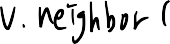 v. neighbor (